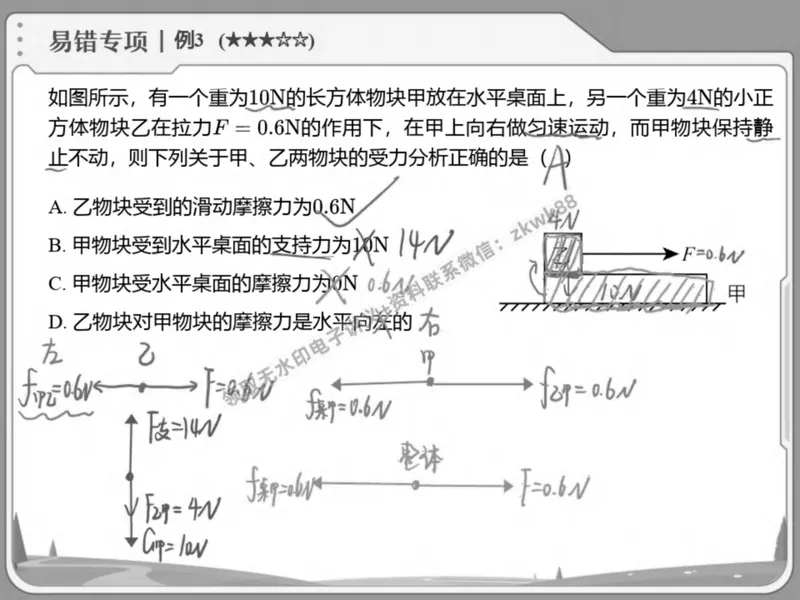 易错专项 | 例3 (★★★☆☆)
如图所示，有一个重为10N的长方体物块甲放在水平桌面上，另一个重为4N的小正
方体物块乙在拉力F = 0.6N的作用下，在甲上向右做匀速运动，而甲物块保持静
止不动，则下列关于甲、乙两物块的受力分析正确的是（A）
A. 乙物块受到的滑动摩擦力为0.6N
B. 甲物块受到水平桌面的支持力为10N 14N
C. 甲物块受水平桌面的摩擦力为0N 0.6N
D. 乙物块对甲物块的摩擦力是水平向左的 右
4N
乙
F=0.6N
10N
甲
领取无水印电子讲义资料联系微信：zkwk88
左 乙
f甲乙=0.6N F=0.6N
F支=14N
F乙甲=4N
G甲=10N
甲
f桌甲=0.6N f乙甲=0.6N
整体
f桌甲=0.6N F=0.6N